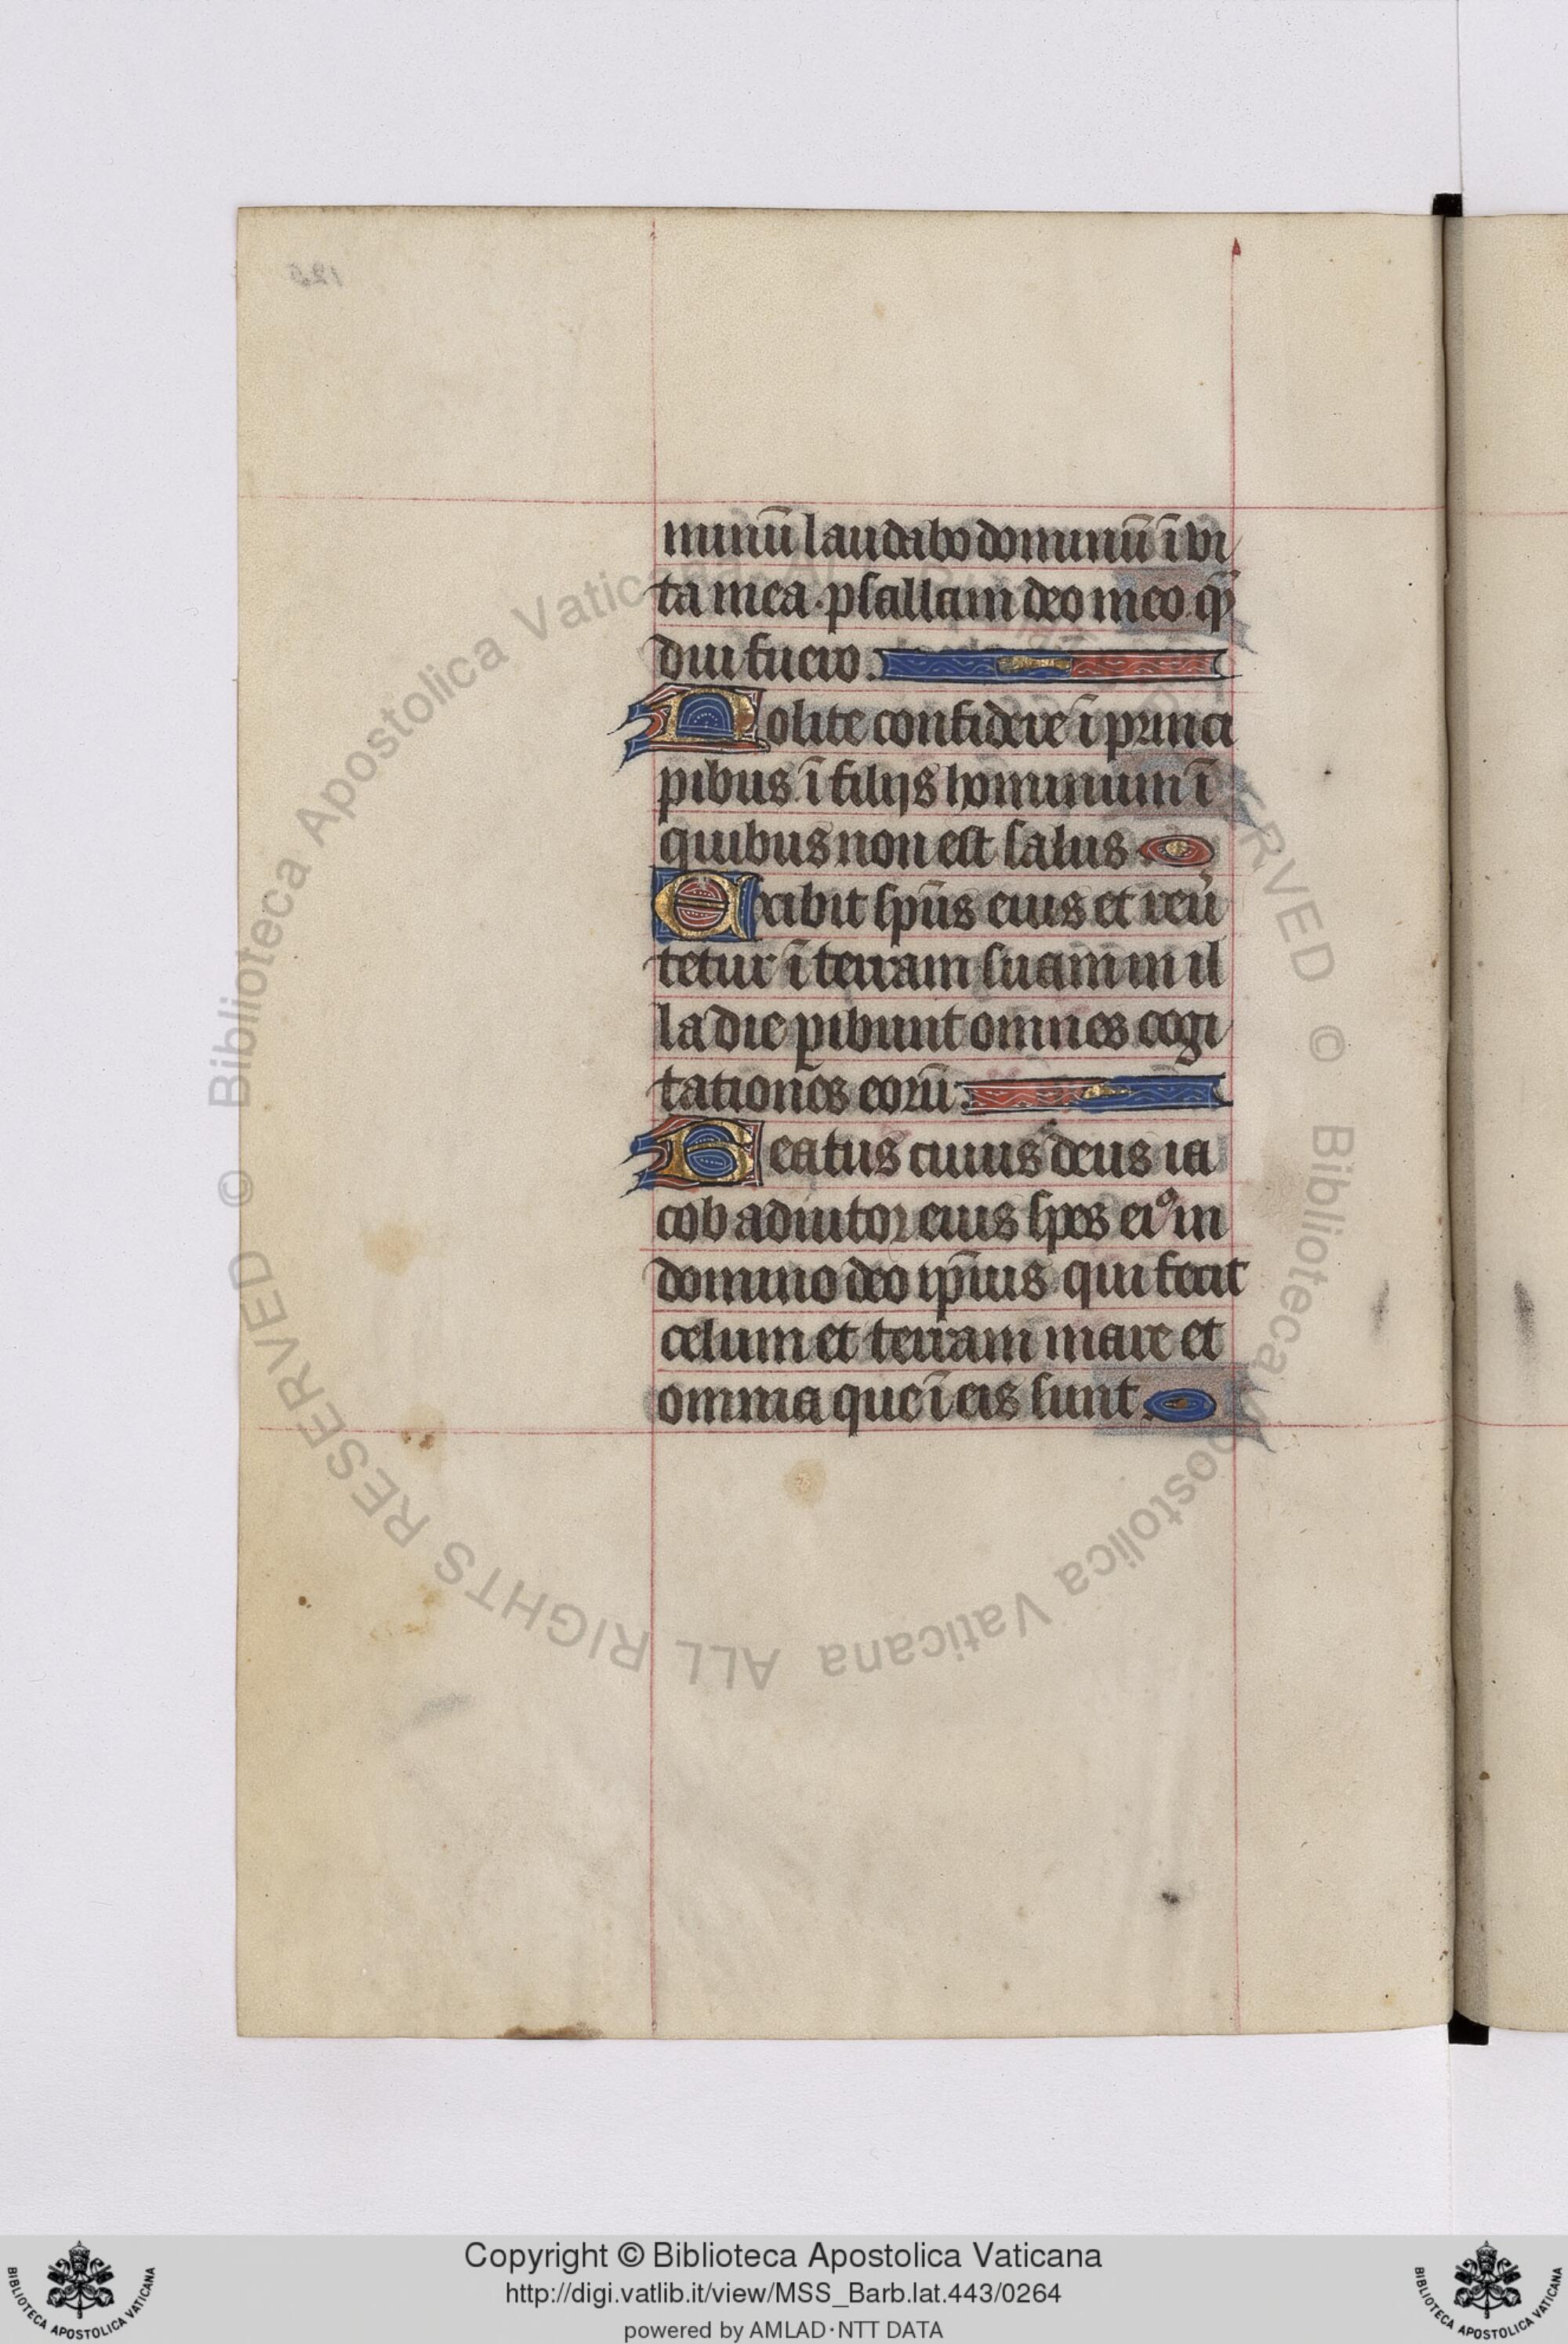 minū laudabo dominū ī vi
ta mea. psallam deo meo q̄
diu fuero.
Nolite confidere ī princi
pibus. ī filijs hominum ī
quibus non est salus.
Exibit sp̄us eius et reu͛
tetur ī terram suam in il
la die ꝑibunt omnes cogi
tationes eorū.
Beatus cuius deus ia
cob adiutor eius spes eiꝰ in
domino deo ip̄ius qui fecit
celum et terram mare et
omnia que ī eis sunt.
© Biblioteca Apostolica Vaticana ALL RIGHTS RESERVED © Biblioteca Apostolica Vaticana ALL RIGHTS RESERVED
Copyright © Biblioteca Apostolica Vaticana
http://digi.vatlib.it/view/MSS_Barb.lat.443/0264
powered by AMLAD·NTT DATA
BIBLIOTECA APOSTOLICA VATICANA
BIBLIOTECA APOSTOLICA VATICANA